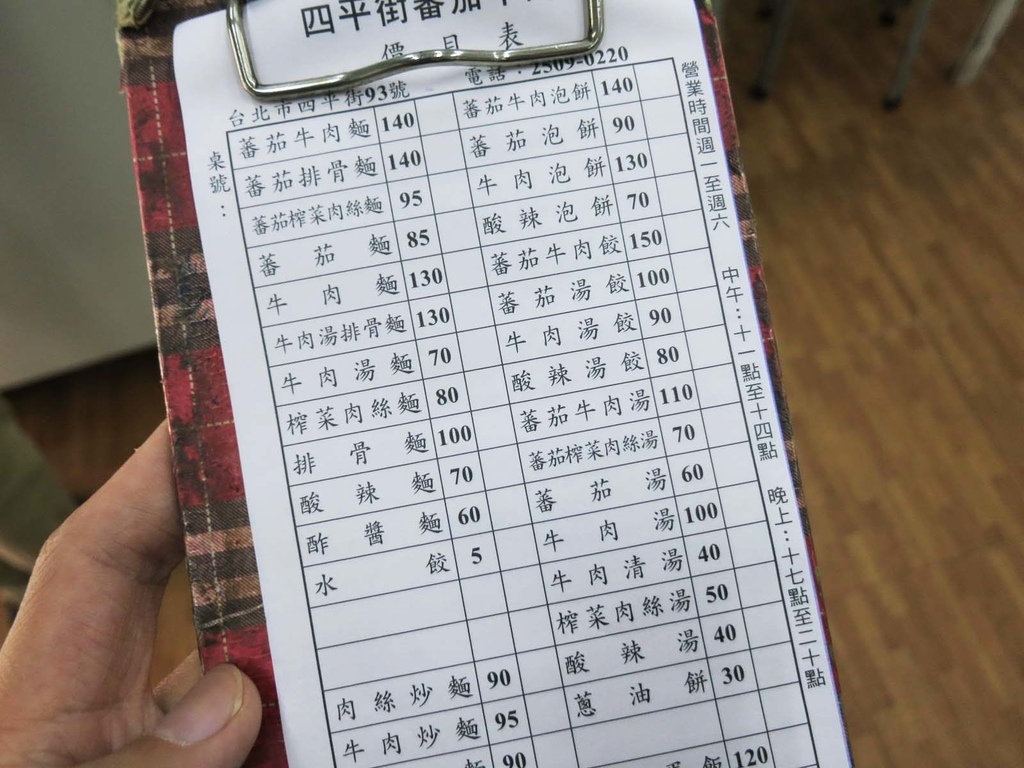 四平街番茄牛
價目表
台北市四平街93號 電話：2509-0220
桌號：
蕃茄牛肉麵 140
蕃茄排骨麵 140
蕃茄榨菜肉絲麵 95
蕃茄麵 85
牛肉麵 130
牛肉湯排骨麵 130
牛肉湯麵 70
榨菜肉絲麵 80
排骨麵 100
酸辣麵 70
酢醬麵 60
水餃 5
肉絲炒麵 90
牛肉炒麵 95
麵 90
蕃茄牛肉泡餅 140
蕃茄泡餅 90
牛肉泡餅 130
酸辣泡餅 70
蕃茄牛肉餃 150
蕃茄湯餃 100
牛肉湯餃 90
酸辣湯餃 80
蕃茄牛肉湯 110
蕃茄榨菜肉絲湯 70
蕃茄湯 60
牛肉湯 100
牛肉清湯 40
榨菜肉絲湯 50
酸辣湯 40
蔥油餅 30
蛋飯 120
營業時間週一至週六 中午：十一點至十四點 晚上：十七點至二十點